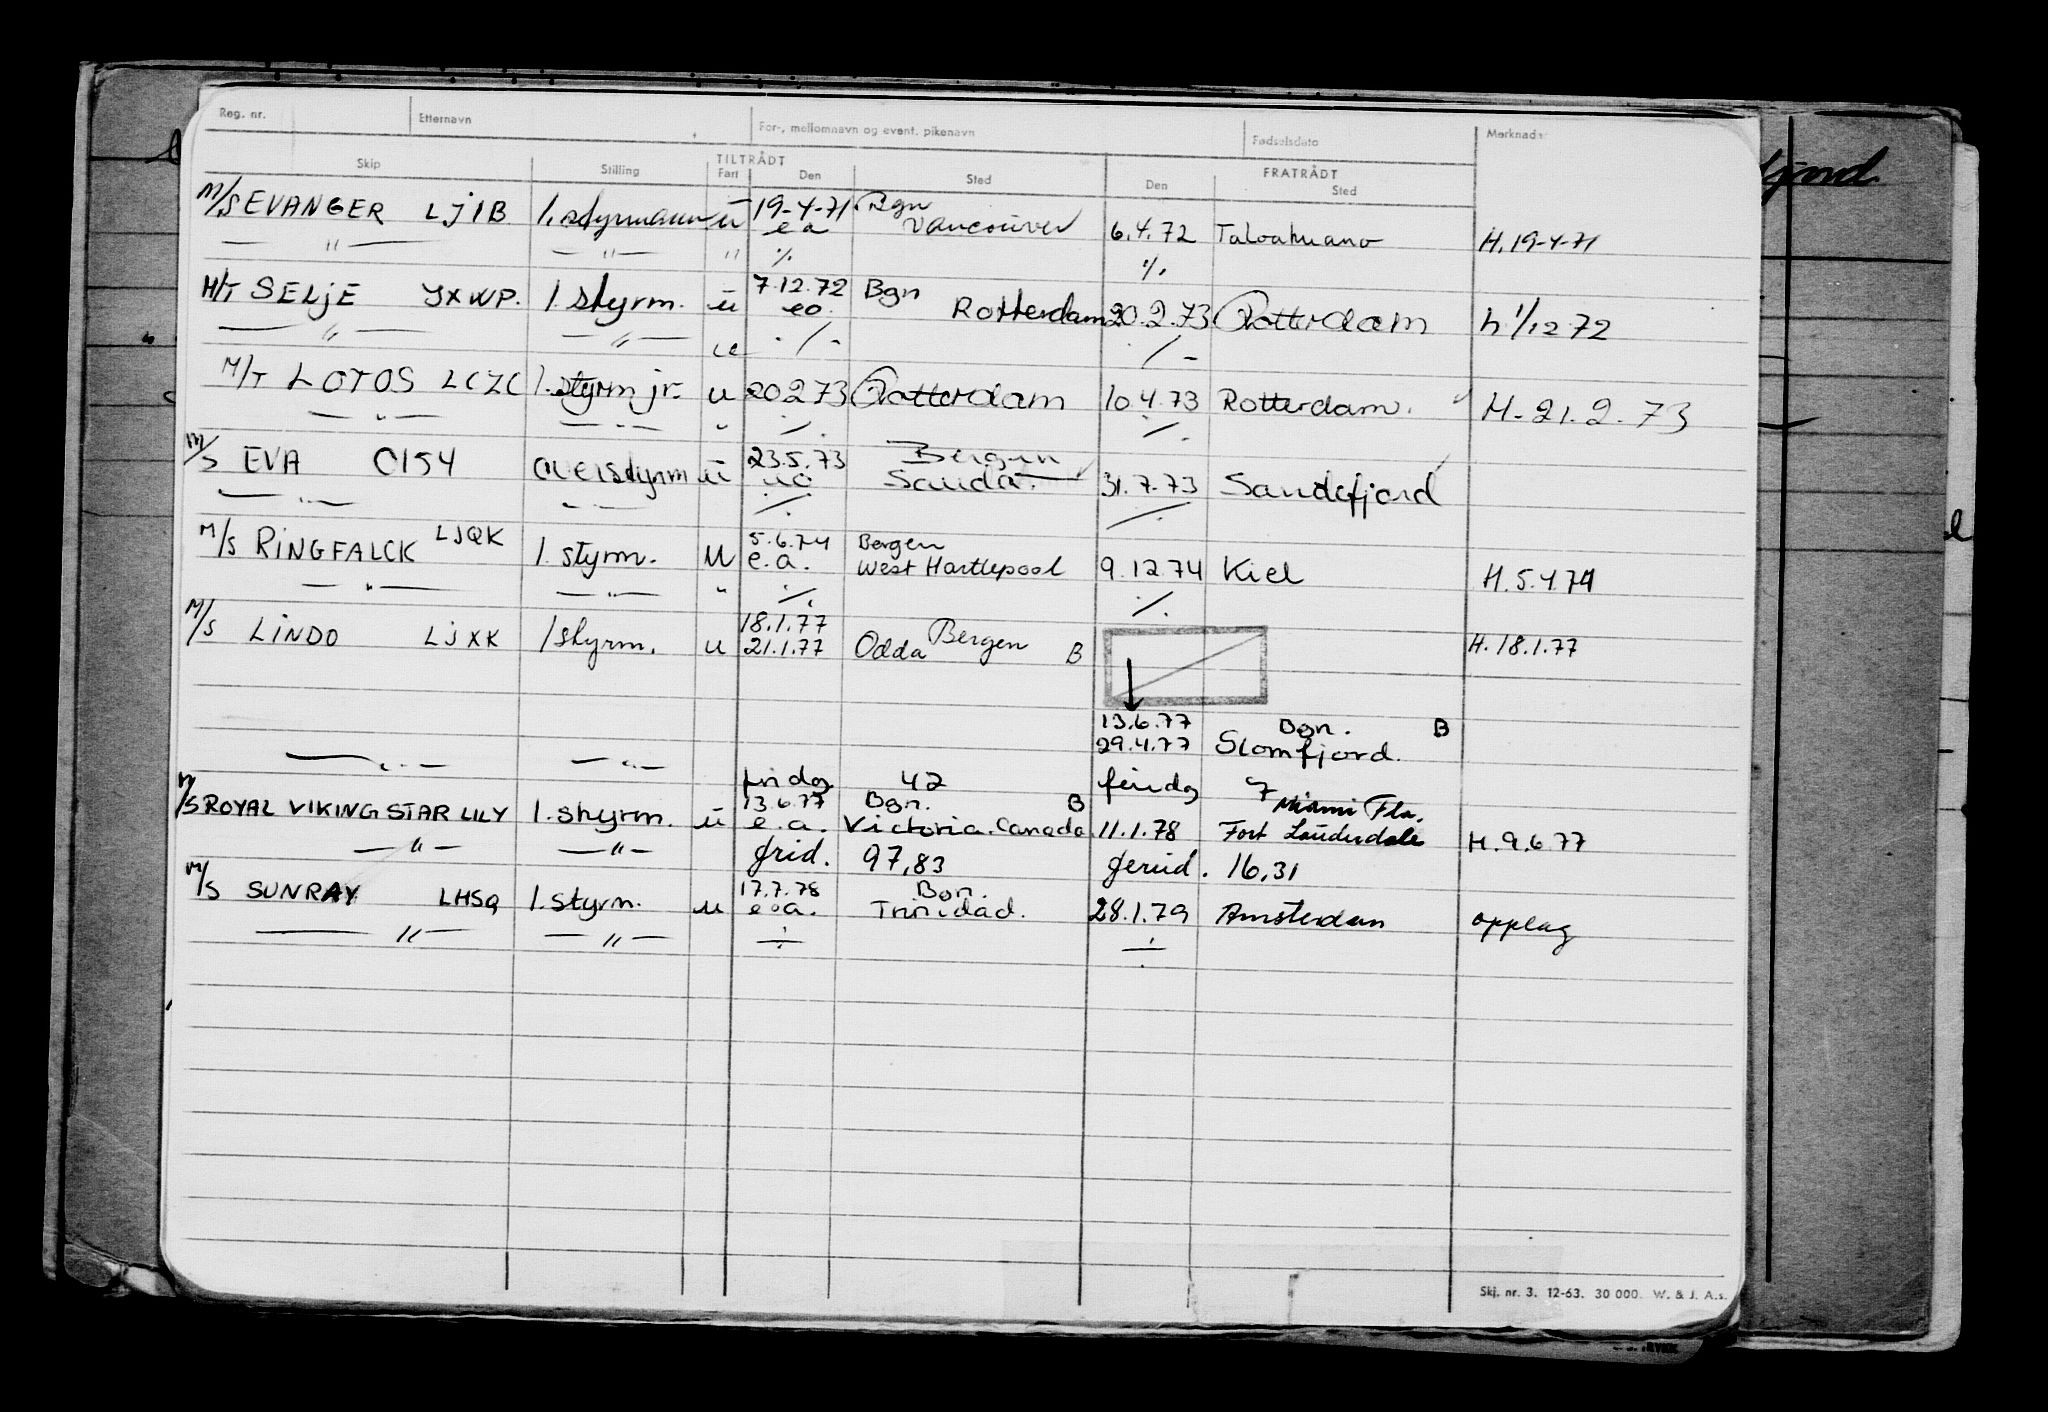 Reg. nr. Etternavn For-, mellomnavn og event. pikenavn Fødselsdato Merknader
Skip Stilling TILTRÅDT Fart Den Sted FRATRÅDT Den Sted
M/S EVANGER LJIB 1. styrmann u 19-4-71 Bgn
ea Vancouver 6.4.72 Talcahuano H. 19-4-71
— " — — " — " %. %.
M/T SELJE JXWP. 1 styrm. u 7.12.72 Bgn
eo. Rotterdam 20.2.73 Rotterdam h 1/12 72
— " — — " — ./- ./-
M/T LOTOS LCZC 1. styrm jr. u 20 2 73 Rotterdam 10.4.73 Rotterdam. H. 21.2.73
— " — — " — " ./. ./.
M/S EVA CI54 overstyrm u 23.5.73 Bergen
uo Sauda. 31.7.73 Sandefjord
— " — — " — ./. ./.
M/S RINGFALCK LJQK 1. styrm. u 5.6.74 Bergen
e.a. West Hartlepool 9.12.74 Kiel H. 5.4.74
— " — — " — " ./. ./.
M/S LINDO LJXK 1 styrm. u 18.1.77 Bergen
21.1.77 Odda B H. 18.1.77
13.6.77 Bgn. B
29.4.77 Glomfjord.
— " — — " —
fridg 42 feridg 7
M/S ROYAL VIKING STAR LILY 1. styrm. u 13.6.77 Bgn. B Miami Fla.
e.a. Victoria. Canada 11.1.78 Fort Lauderdale H. 9.6.77
— " — — " — frid. 97,83 feried. 16,31
M/S SUNRAY LHSQ 1. styrm. u 17.7.78 Bgn.
e.a. Trinidad. 28.1.79 Amsterdam opplag
— " — — " — ÷ ÷
Skj. nr. 3. 12-63. 30 000. W. & J. A.s.